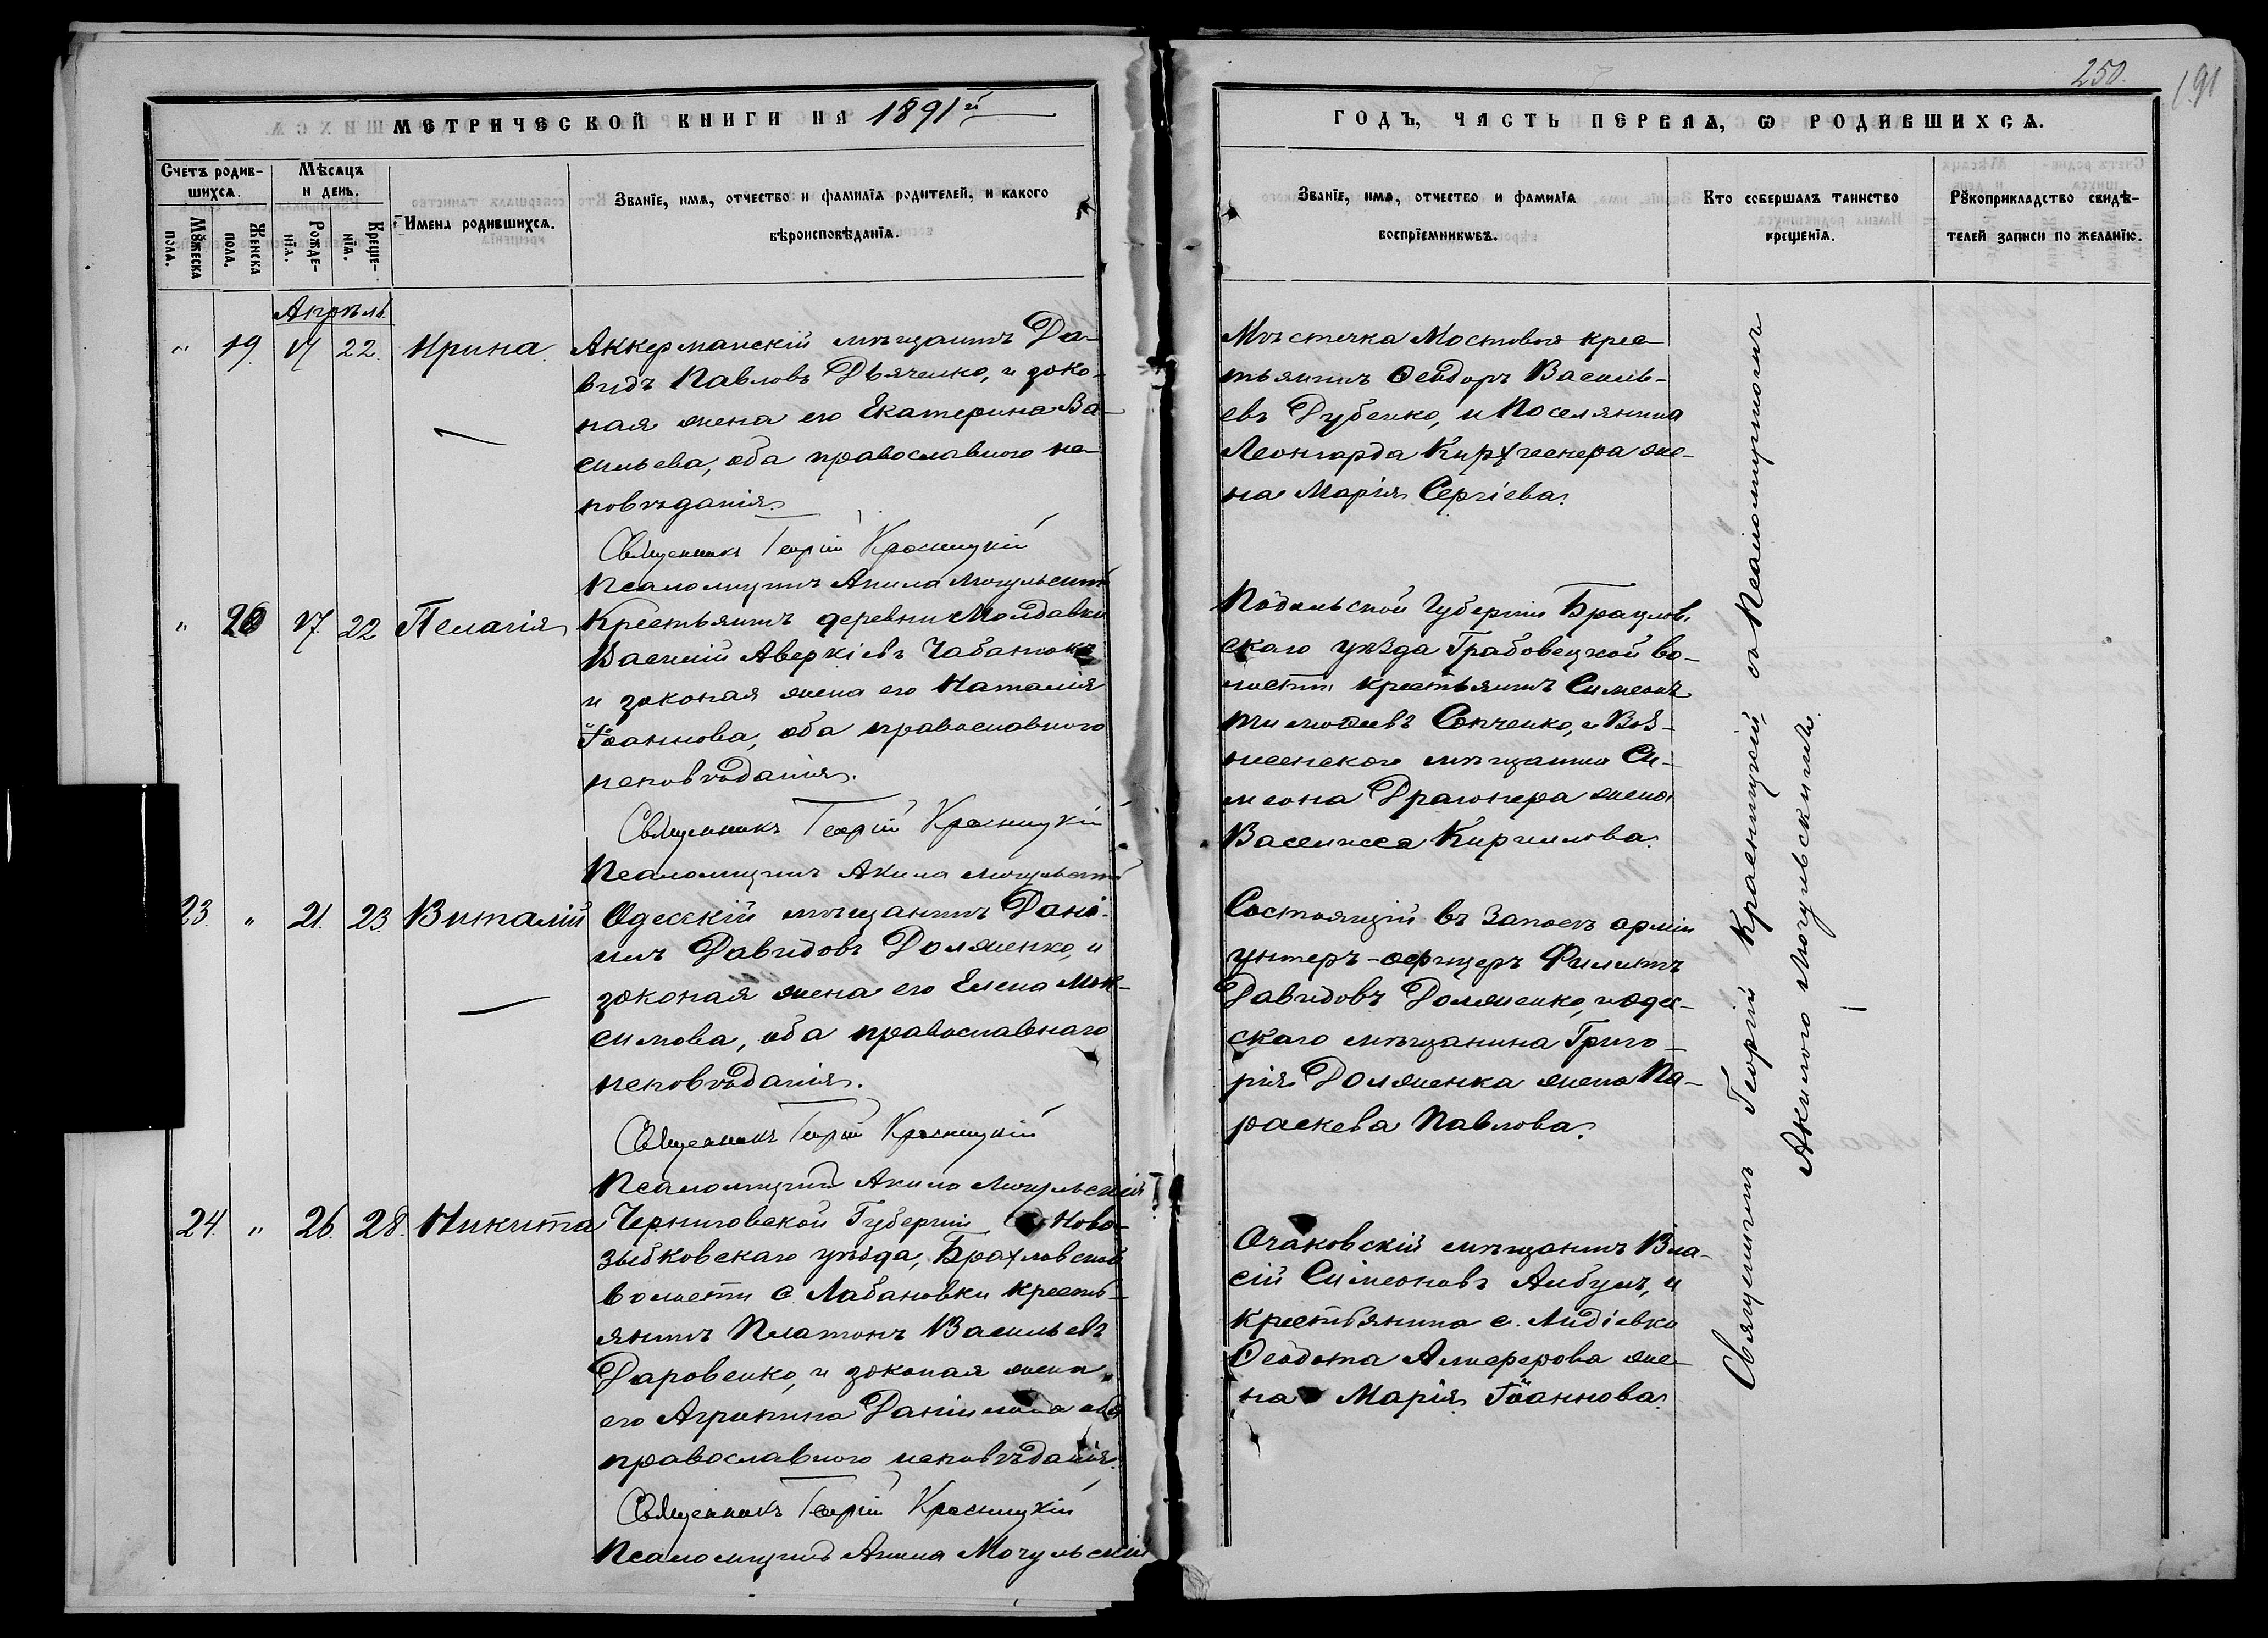 250.
191
МЕТРИЧЕСКОЙ КНИГИ НА 1891й
ГОДЪ, ЧАСТЬ ПЕРВАѦ, Ѡ РОДИВШИХСѦ.
Счетъ родив-
шихсѧ.
Мѣсѧцъ
и день.
Мꙋжеска
пола.
Женска
пола.
Рожде-
нїѧ.
Креще-
нїѧ.
Имена родившихсѧ.
Званїе, имѧ, отчество и фамилїѧ родителей, и какого
вѣроисповѣданїѧ.
Званїе, имѧ, отчество и фамилїѧ
воспрїемниковъ.
Кто совершалъ таинство
крещенїѧ.
Рꙋкоприкладство свидѣ-
телей записи по желанїю.
Апрѣль
" 19. 17 22. Ирина.
Аккерманскій мѣщанинъ Да-
видъ Павловъ Дьяченко, и зако-
ная жена его Екатерина Ва-
сильева, оба православного ис-
повѣданія.
Священникъ Георгій Красницкій
Псаломщикъ Акила Могульскій
Мѣстечка Мостовыя крес-
тьянинъ Ѳеодоръ Василь-
евъ Дубенко, и Поселянина
Леонгарда Кирхгеснера же-
на Марія Сергіева.
" 20 17. 22 Пелагія
Крестьянинъ деревни Молдавки
Василій Аверкіевъ Чабанюкъ
и законая жена его Наталія
Іоаннова, оба православного
исповѣданія.
Священникъ Георгій Красницкій
Псаломщикъ Акила Могульскій
Подольской Губерніи Брацлов.
скаго уѣзда Грабовецкой во-
лости крестьянинъ Симеонъ
Тимоѳеевъ Сопченко, и Воз-
несенского мѣщанина Си-
меона Драгонера жена
Васелиса Кирилова.
23. " 21. 23. Виталій
Одесскій мѣщанинъ Дані-
илъ Давидовъ Долженко, и
законая жена его Елена Мак-
симова, оба православнаго
исповѣданія.
Священникъ Георгій Красницкій
Псаломщикъ Акила Могульскій
Состоящій въ Запасѣ арміи
унтеръ-офицеръ Филипъ
Давидовъ Долженко, и одес-
скаго мѣщанина Григо-
рія Долженка жена Па-
раскева Павлова.
24. " 26. 28. Никита
Черниговской Губерніи Ново-
зыбковскаго уѣзда, Брахловской
волости с. Лабановки кресть-
янинъ Платонъ Васильевъ
Даровенко, и законая жена
его Агрипина Даніилова оба
православного исповѣданія.
Священникъ Георгій Красницкій
Псаломщикъ Акила Могульскій
Очаковскій мѣщанинъ Вла-
сій Симеоновъ Албулъ, и
крестьянина с. Лидіевки
Ѳеодота Алферова же-
на Марія Іоаннова.
Священникъ Георгій Красницкій, съ Псаломщикомъ
Акилою Могульскимъ.